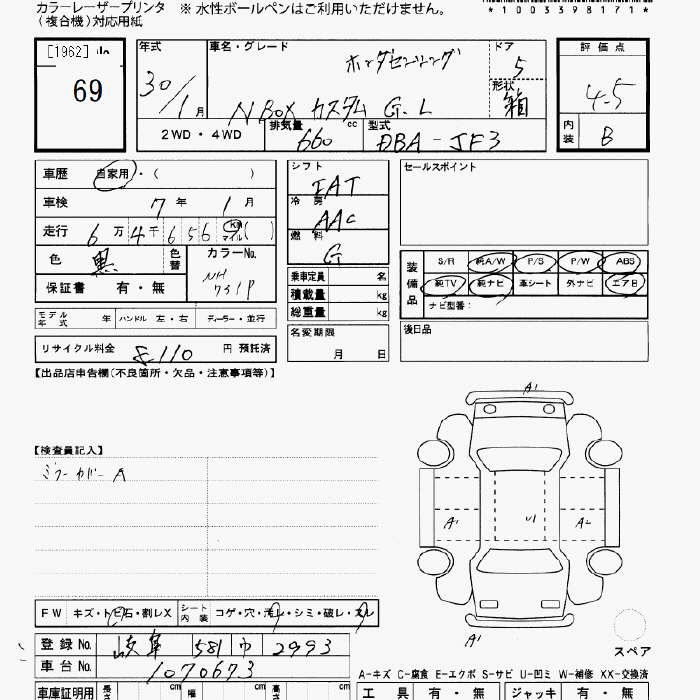 カラーレーザープリンタ ※ 水性ボールペンはご利用いただけません。
(複合機)対応用紙
*1003898171*
[1962]
69
年式
30/1月
車名・グレード
ホンダセンシング
N BOX カスタム G.L
ドア
5
形状
箱
2WD・4WD
排気量
660 cc
型式
DBA-JF3
評価点
4.5
内装
B
車歴 自家用・( )
車検 7年 1月
走行 6万4千656 KM マイル( )
色 黒 色替
カラーNo.
NH731P
保証書 有・無
モデル年式 年 ハンドル 左・右 ディーラー・並行
リサイクル料金 8,110 円 預託済
シフト
IAT
冷房
AAC
燃料
G
乗車定員 名
積載量 kg
総重量 kg
名変期限
月 日
セールスポイント
装備品
S/R 純A/W P/S P/W ABS
純TV 純ナビ 革シート 外ナビ エアB
ナビ型番:
後日品
【出品店申告欄(不良箇所・欠品・注意事項等)】
【検査員記入】
ミラーカバー A
A1
A1
U1
A2
A1
スペア
FW キズ・トビ石・割レX シート内装 コゲ・穴・汚レ・シミ・破レ・スレ
登録No. 岐阜 581 2993
車台No. 1070673
A-キズ C-腐食 E-エクボ S-サビ U-凹ミ W-補修 XX-交換済
車庫証明用 長さ cm 幅 cm 高さ cm
工具 有・無 ジャッキ 有・無